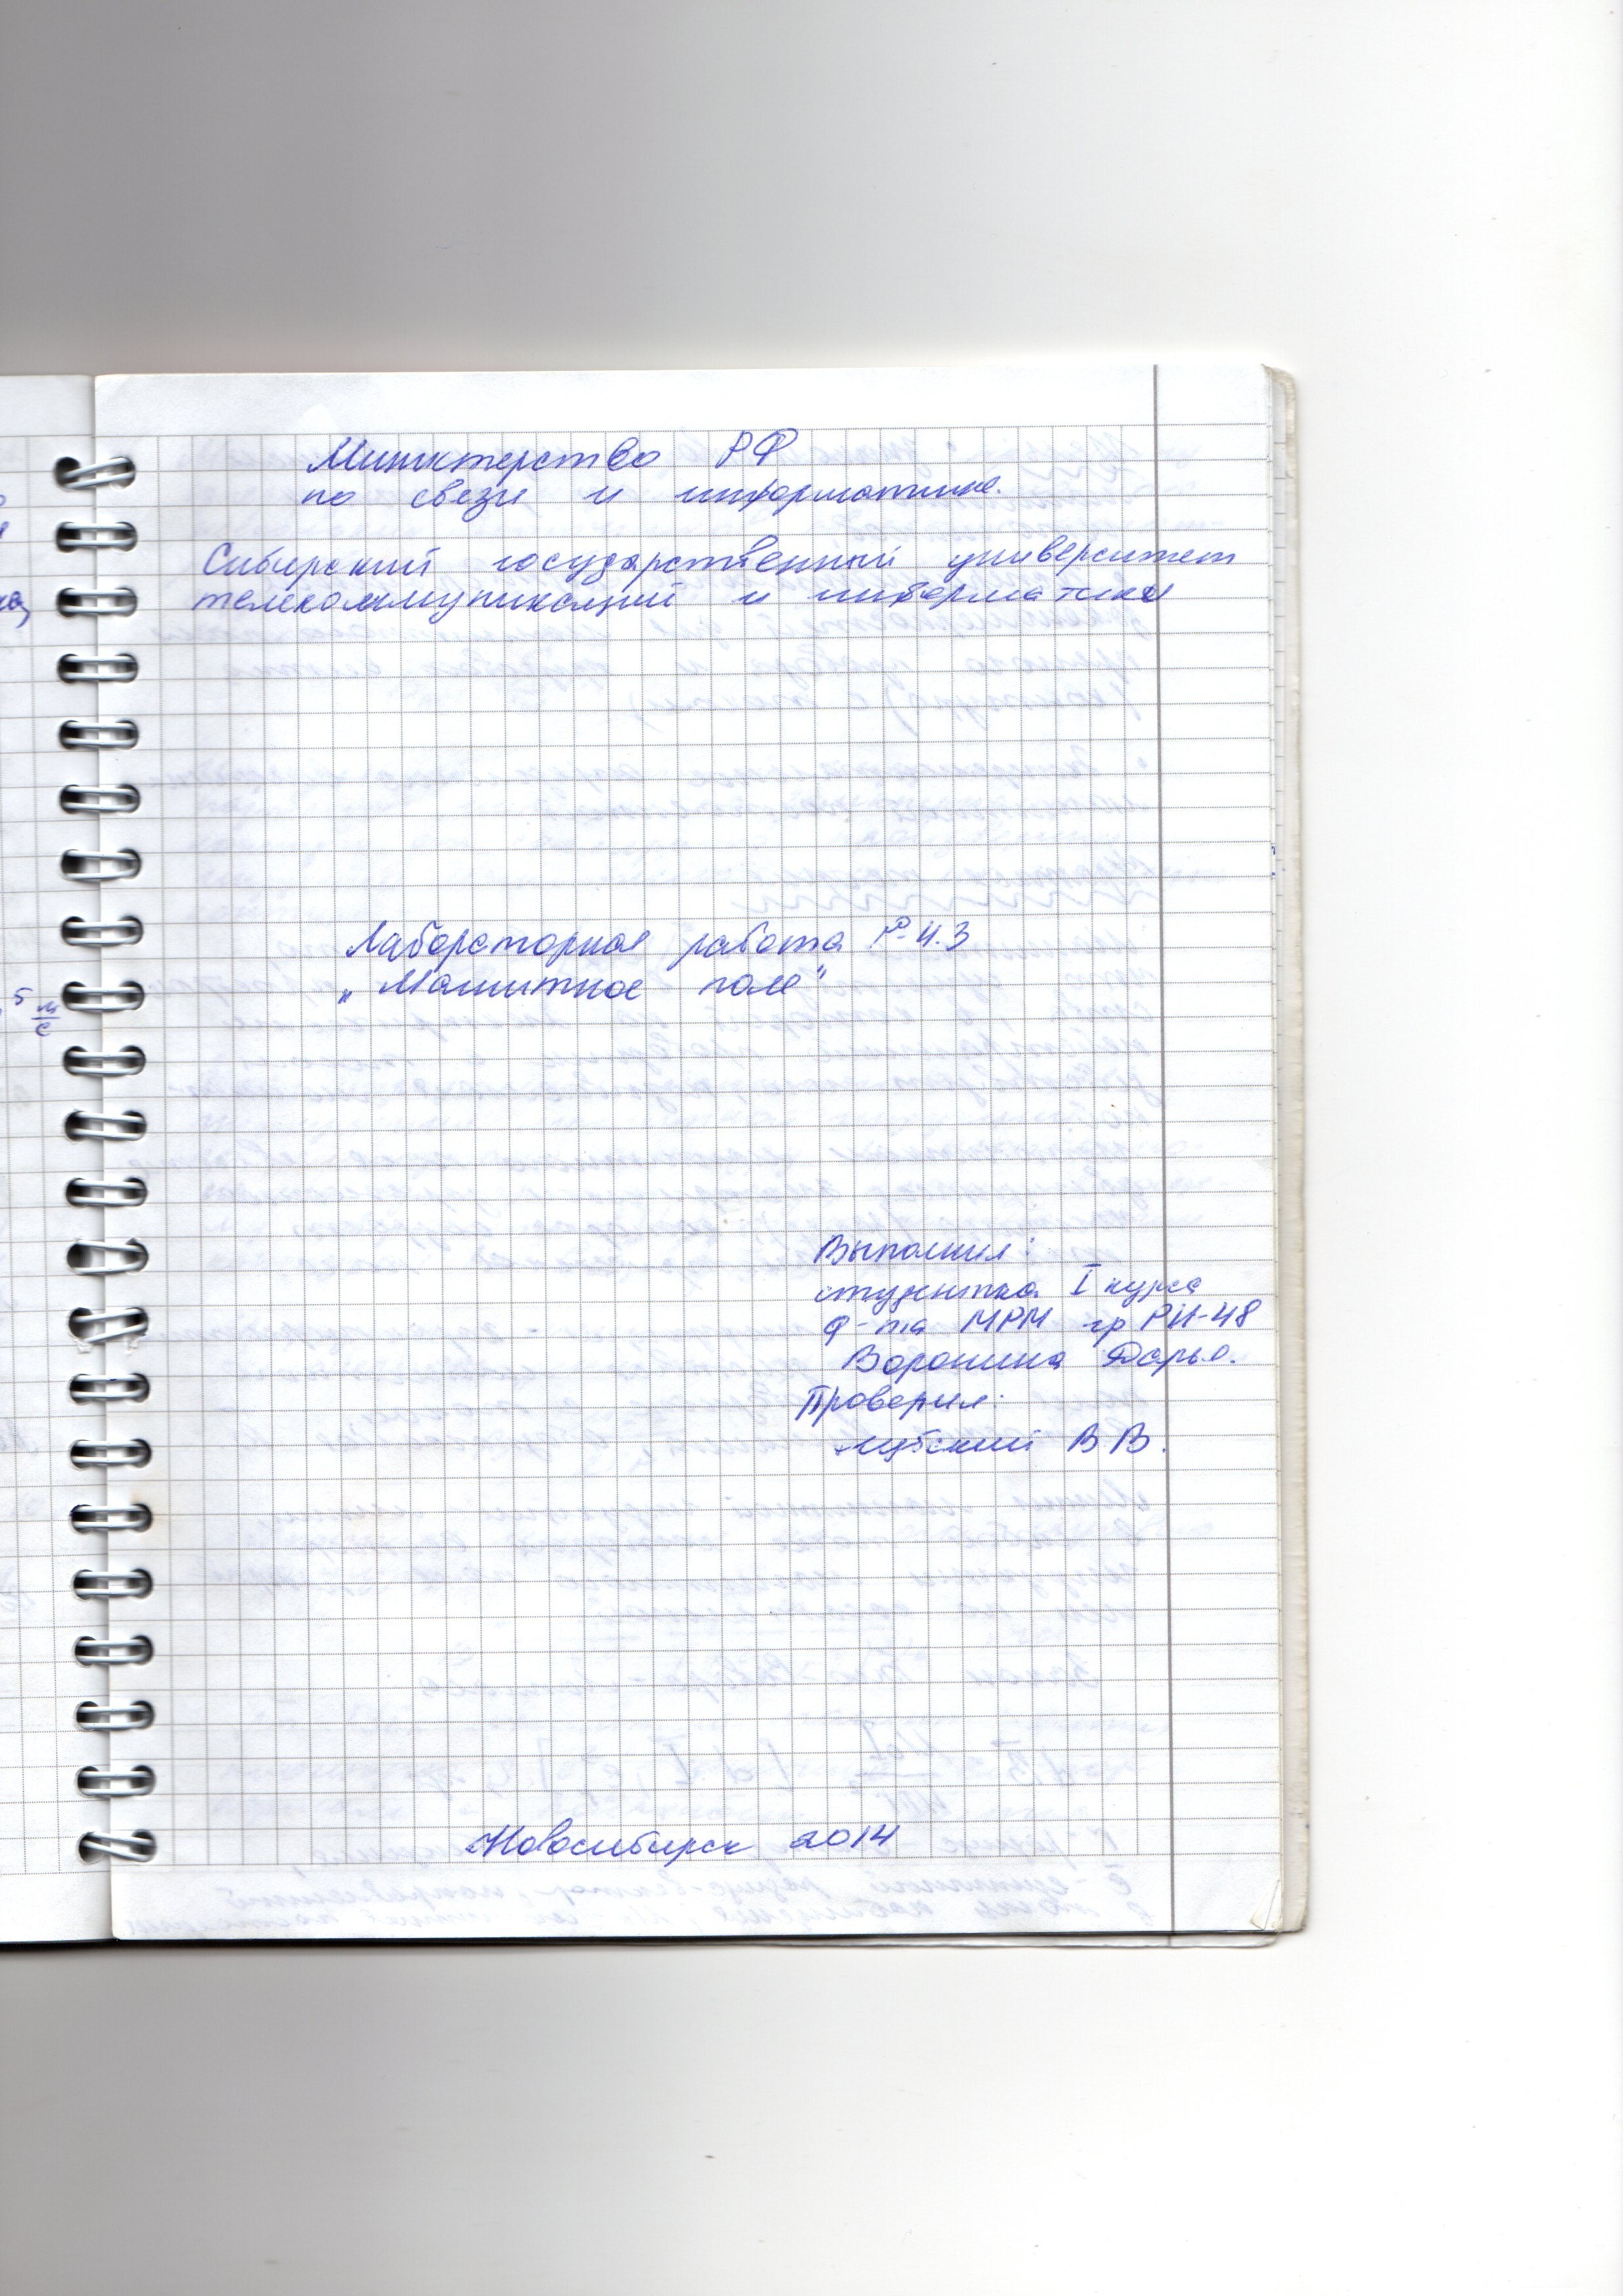 Министерство РФ
по связи и информатике.
Сибирский государственный университет
телекоммуникаций и информатики
Лабораторная работа 4.3
„Магнитное поле"
Выполнил:
студентка I курса
ф-та МРМ гр РИ-48
Воронина Дарья.
Проверил:
В В.
Новосибирск 2014
5 м/с